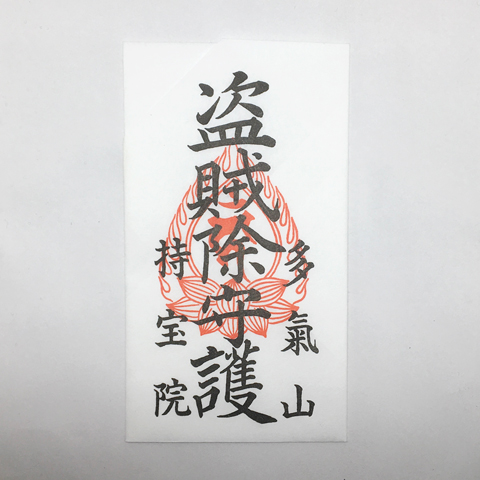 多氣山
盗賊除守護
持宝院